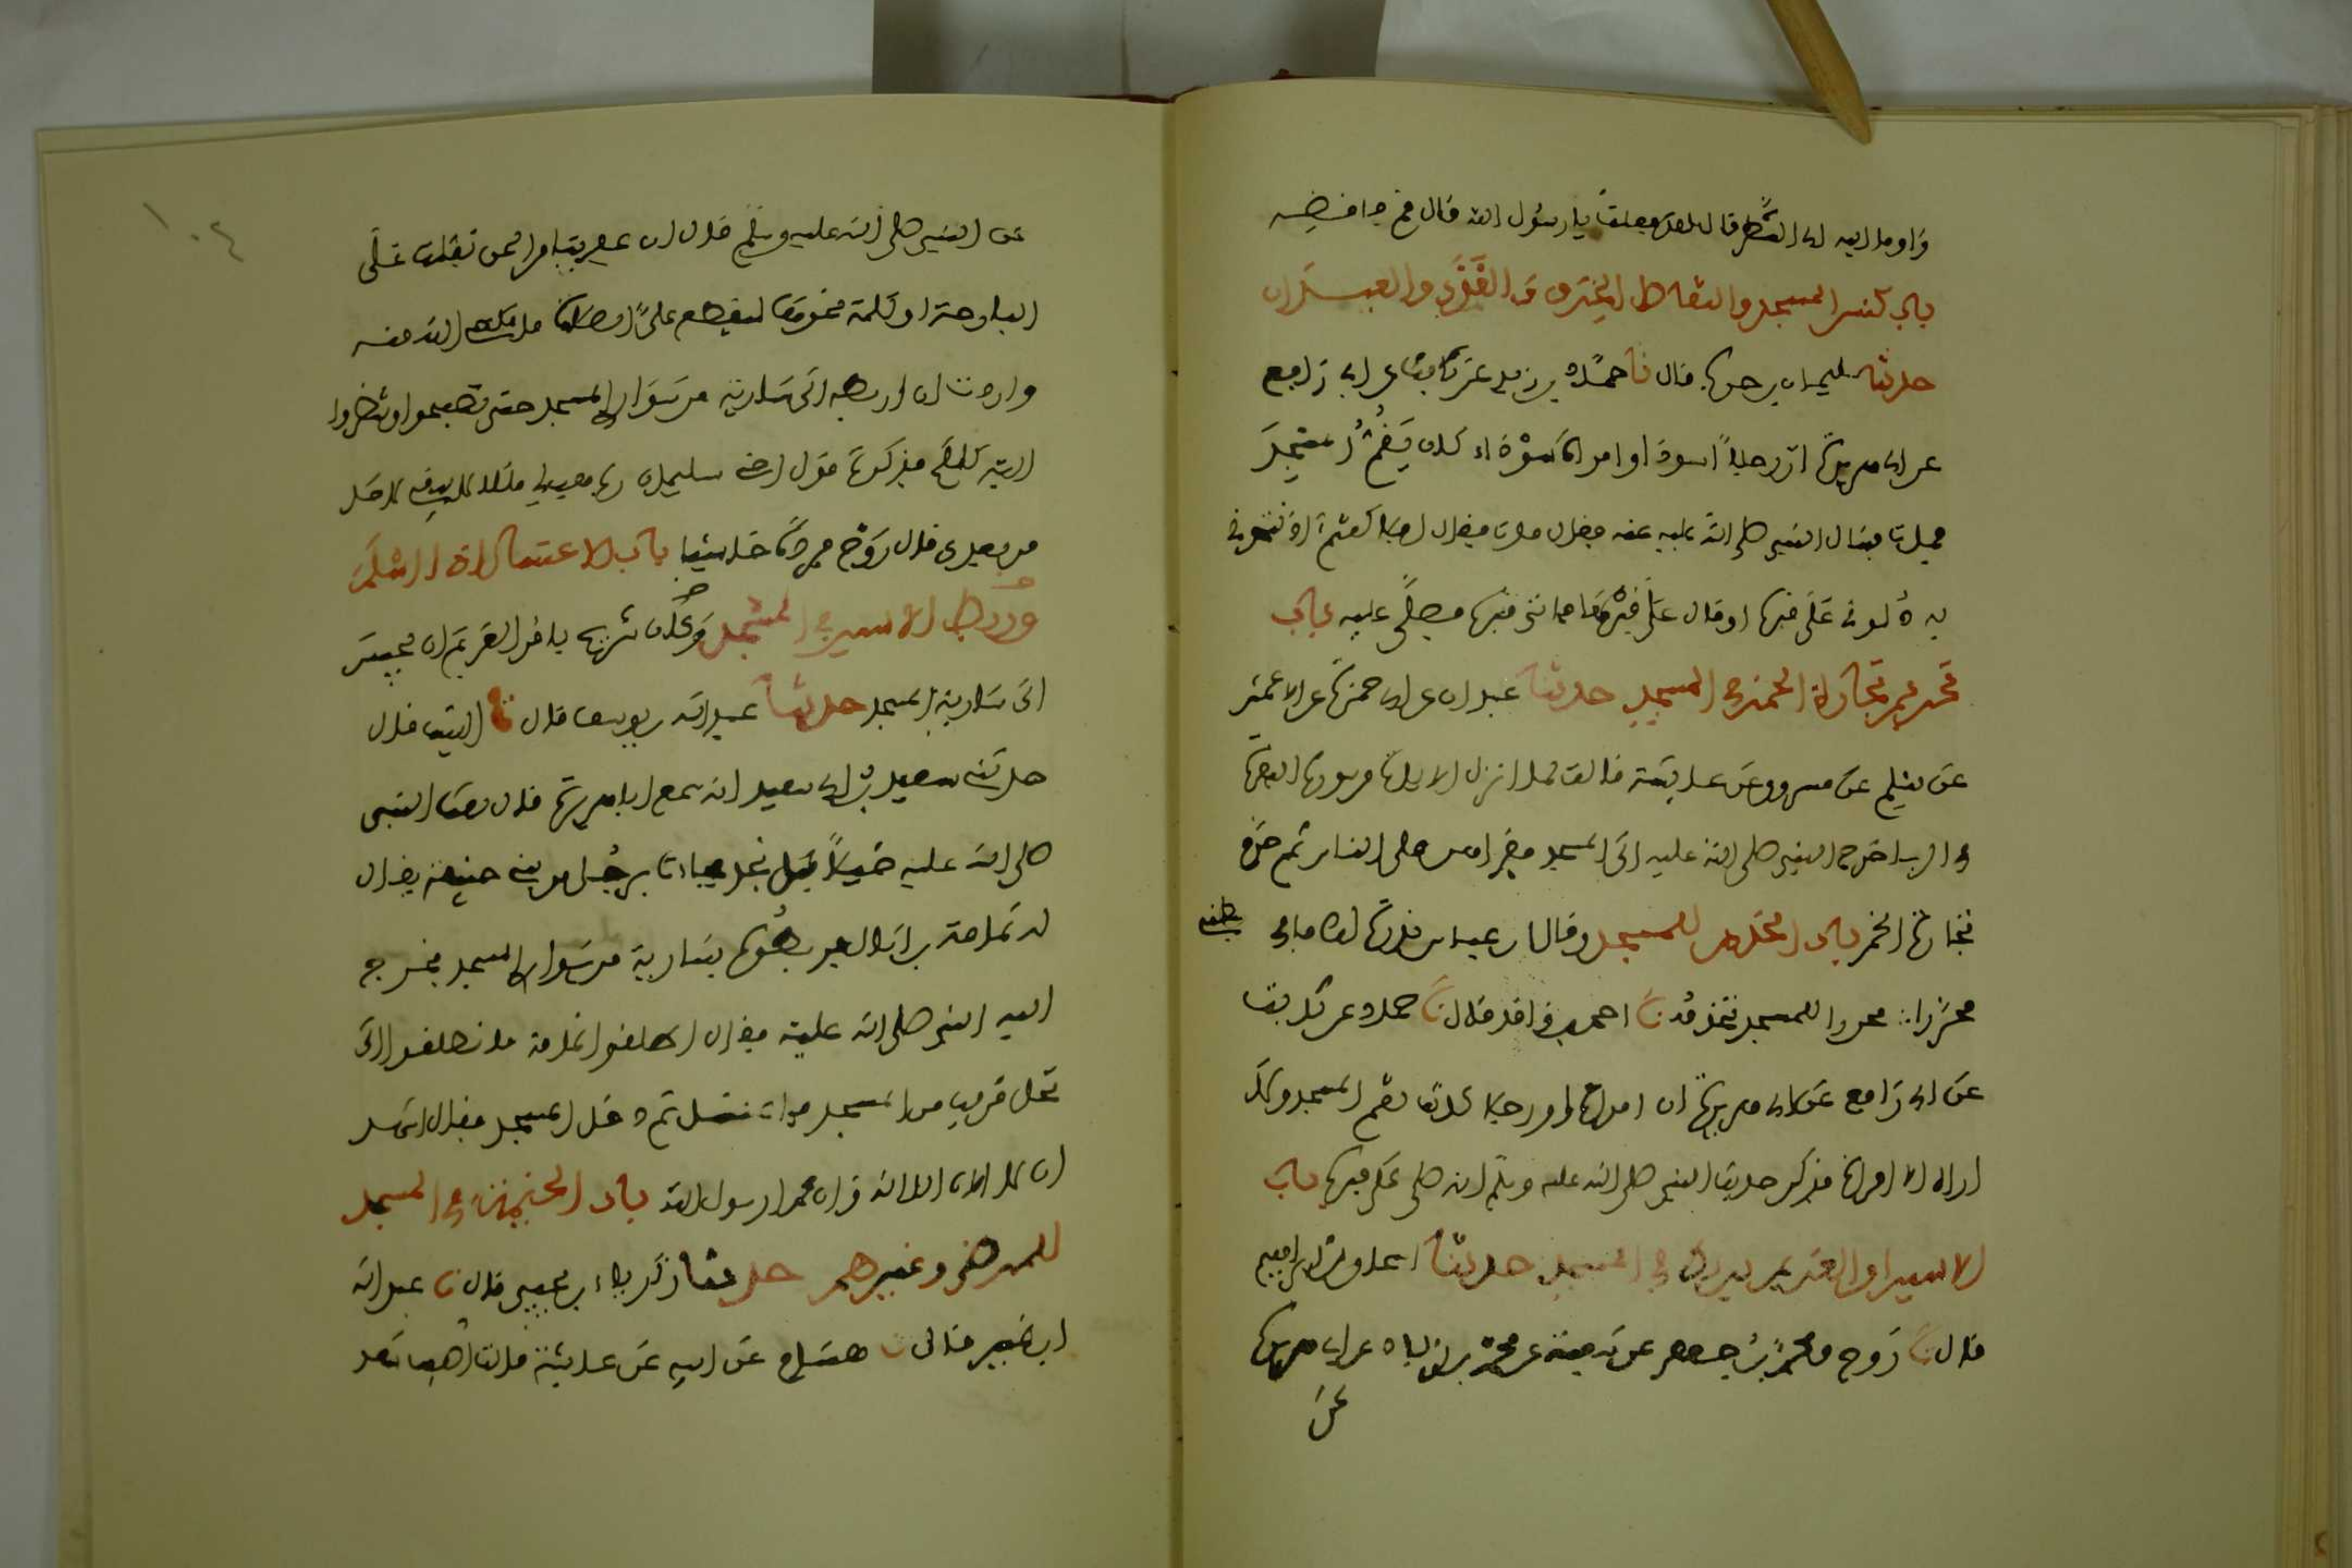 وأومأ إليه أي الشطر قال لقد فعلت يا رسول الله قال قم فاقضه
باب كنس المسجد والتقاط الخرق والقذى والعيدان
حدثنا سليمان بن حرب قال نا حماد بن زيد عن ثابت عن أبي رافع
عن أبي هريرة أن رجلا أسود أو امرأة سوداء كان يقم المسجد
فمات فسأل النبي صلى الله عليه عنه فقالوا مات فقال أفلا كنتم آذنتموني
به دلوني على قبره أو قال على قبرها فأتى قبرها فصلى عليه باب
تحريم تجارة الخمر في المسجد حدثنا عبدان عن أبي حمزة عن الأعمش
عن مسلم عن مسروق عن عائشة قالت لما أنزل الآيات من سورة البقرة
في الربا خرج النبي صلى الله عليه إلى المسجد فقرأهن على الناس ثم حرم
تجارة الخمر باب الخدم للمسجد وقال ابن عباس نذرت لك ما في بطني
محررا محررا للمسجد تخدمه نا أحمد بن واقد قال نا حماد عن ثابت
عن أبي رافع عن أبي هريرة أن امرأة أو رجلا كانت تقم المسجد ولا
أراه إلا امرأة فذكر حديث النبي صلى الله عليه وسلم أنه صلى على قبرها باب
الأسير أو الغريم يربط في المسجد حدثنا إسحاق بن إبراهيم
قال نا روح ومحمد بن جعفر عن شعبة عن محمد بن زياد عن أبي هريرة
عن
١٠٤
عن النبي صلى الله عليه وسلم قال إن عفريتا من الجن تفلت علي
البارحة أو كلمة نحوها ليقطع علي الصلاة فأمكنني الله منه
وأردت أن أربطه إلى سارية من سواري المسجد حتى تصبحوا وتنظروا
إليه كلكم فذكرت قول أخي سليمان رب هب لي ملكا لا ينبغي لأحد
من بعدي قال روح فرده خاسئا باب الاغتسال إذا أسلم
وربط الأسير في المسجد وكان شريح يأمر الغريم أن يحبس
إلى سارية المسجد حدثنا عبد الله بن يوسف قال نا الليث قال
حدثني سعيد بن أبي سعيد أنه سمع أبا هريرة قال بعث النبي
صلى الله عليه خيلا قبل نجد فجاءت برجل من بني حنيفة يقال
له ثمامة بن أثال فربطوه بسارية من سواري المسجد فخرج
إليه النبي صلى الله عليه فقال أطلقوا ثمامة فانطلق إلى
نخل قريب من المسجد فاغتسل ثم دخل المسجد فقال أشهد
أن لا إله إلا الله وأن محمدا رسول الله باب الخيمة في المسجد
للمرضى وغيرهم حدثنا زكرياء بن يحيى قال نا عبد الله
ابن نمير قال نا هشام عن أبيه عن عائشة قالت أصيب سعد